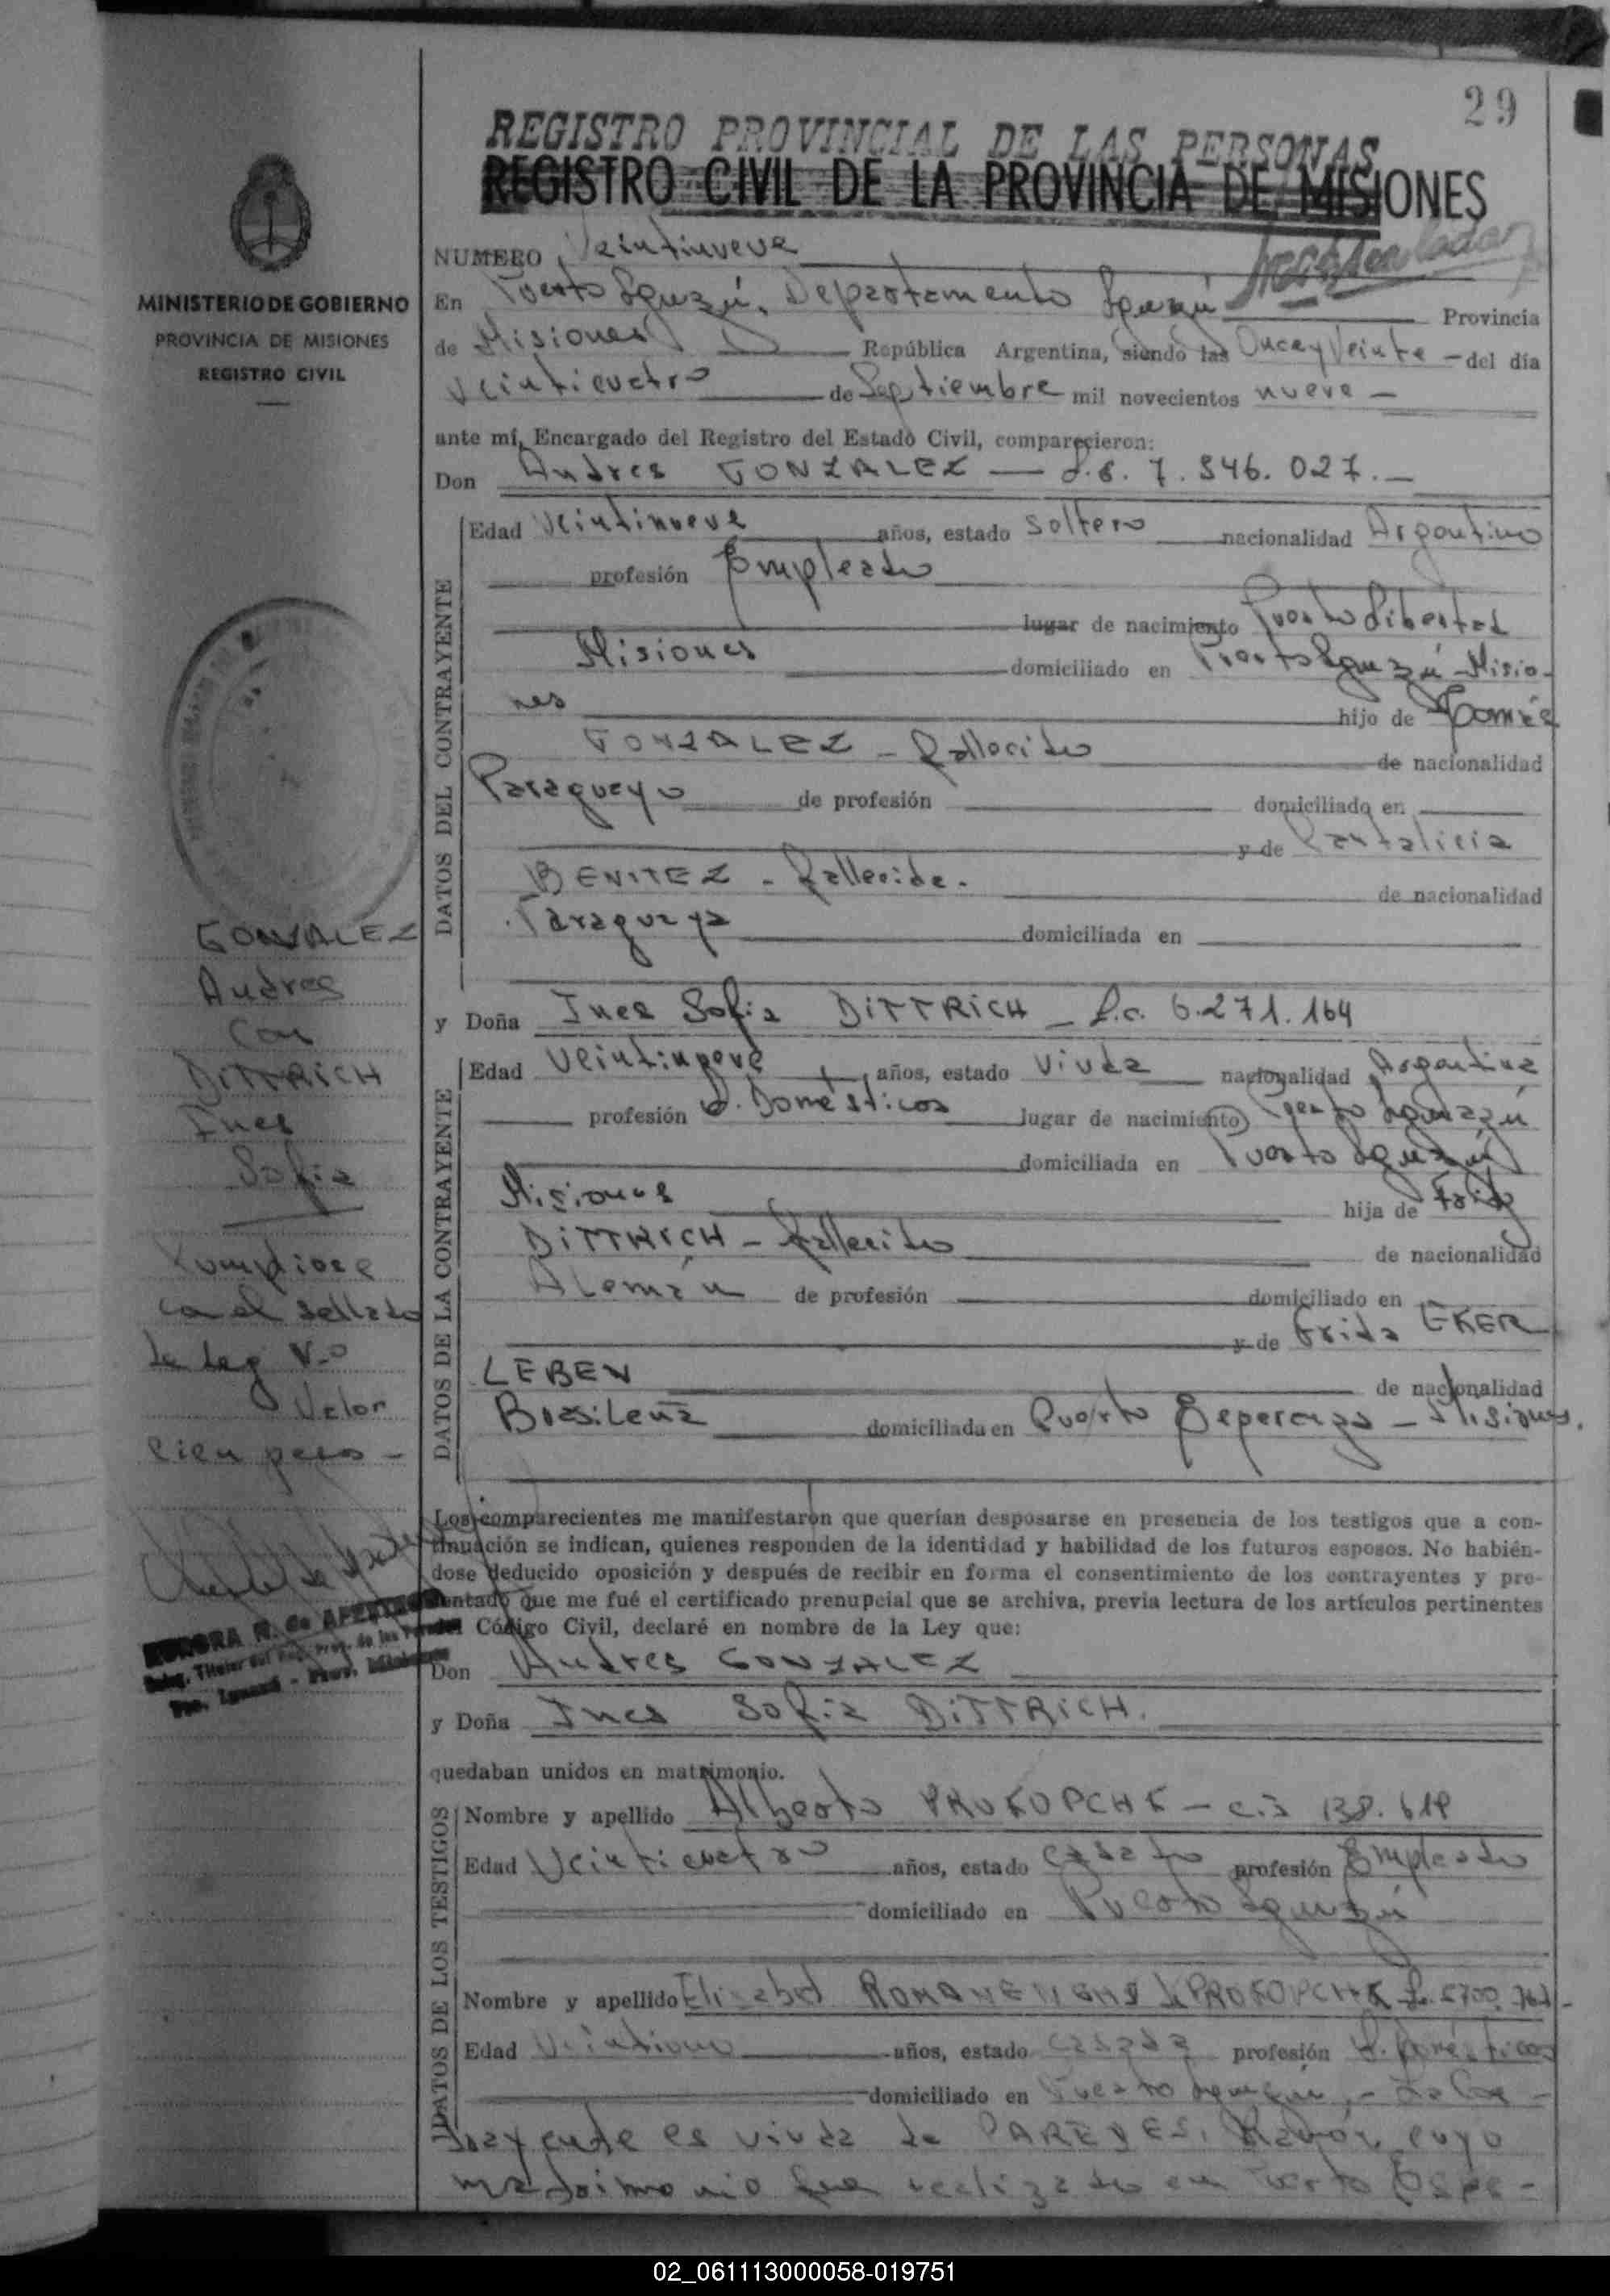 29
REGISTRO PROVINCIAL DE LAS PERSONAS
REGISTRO CIVIL DE LA PROVINCIA DE MISIONES
MINISTERIO DE GOBIERNO
PROVINCIA DE MISIONES
REGISTRO CIVIL
NUMERO Veintinueve
En Puerto Iguazú, Departamento Iguazú Provincia
de Misiones República Argentina, siendo las Once y Veinte del día
Veinticuatro de Septiembre mil novecientos nueve
ante mí, Encargado del Registro del Estado Civil, comparecieron:
Don Andres GONZALEZ 7.546.027.
Edad Veintinueve años, estado soltero nacionalidad Argentino
profesión Empleado
lugar de nacimiento Puerto Libertad
Misiones domiciliado en Puerto Iguazú - Misio-
nes hijo de
GONZALEZ - fallecido de nacionalidad
Paraguayo de profesión domiciliado en
y de Pantalicia
BENITEZ - fallecida. de nacionalidad
Paraguaya domiciliada en
y Doña Ines Sofia DITTRICH - L.C. 6.271.164
Edad Veintinueve años, estado Viuda nacionalidad Argentina
profesión Q. Domésticos lugar de nacimiento Puerto Iguazú
domiciliada en Puerto Iguazú
Misiones hija de
DITTRICH - fallecido de nacionalidad
Alemán de profesión domiciliado en
y de Frida EKER
LEBEN de nacionalidad
Brasileña domiciliada en Puerto Esperanza - Misiones.
GONZALEZ
Andres
Con
DITTRICH
Ines
Sofia
Cumpliose
con el sellado
de Ley
Valor
cien pesos -
Los comparecientes me manifestaron que querían desposarse en presencia de los testigos que a con-
tinuación se indican, quienes responden de la identidad y habilidad de los futuros esposos. No habién-
dose deducido oposición y después de recibir en forma el consentimiento de los contrayentes y pre-
sentado que me fué el certificado prenupcial que se archiva, previa lectura de los artículos pertinentes
del Código Civil, declaré en nombre de la Ley que:
Don Andres GONZALEZ
y Doña Ines Sofia DITTRICH.
quedaban unidos en matrimonio.
Nombre y apellido Alberto PROKOPCHK - C.I. 138.619
Edad Veinticuatro años, estado casado profesión Empleado
domiciliado en Puerto Iguazú
Nombre y apellido Elisabet de PROKOPCHK
Edad Veintiuno años, estado casada profesión Q. Domésticos
domiciliado en Puerto Iguazú, - La Con-
trayente es viuda de PAREDES, Ramón, cuyo
matrimonio fue realizado en Puerto Espe-
DATOS DEL CONTRAYENTE
DATOS DE LA CONTRAYENTE
DATOS DE LOS TESTIGOS
02_061113000058-019751